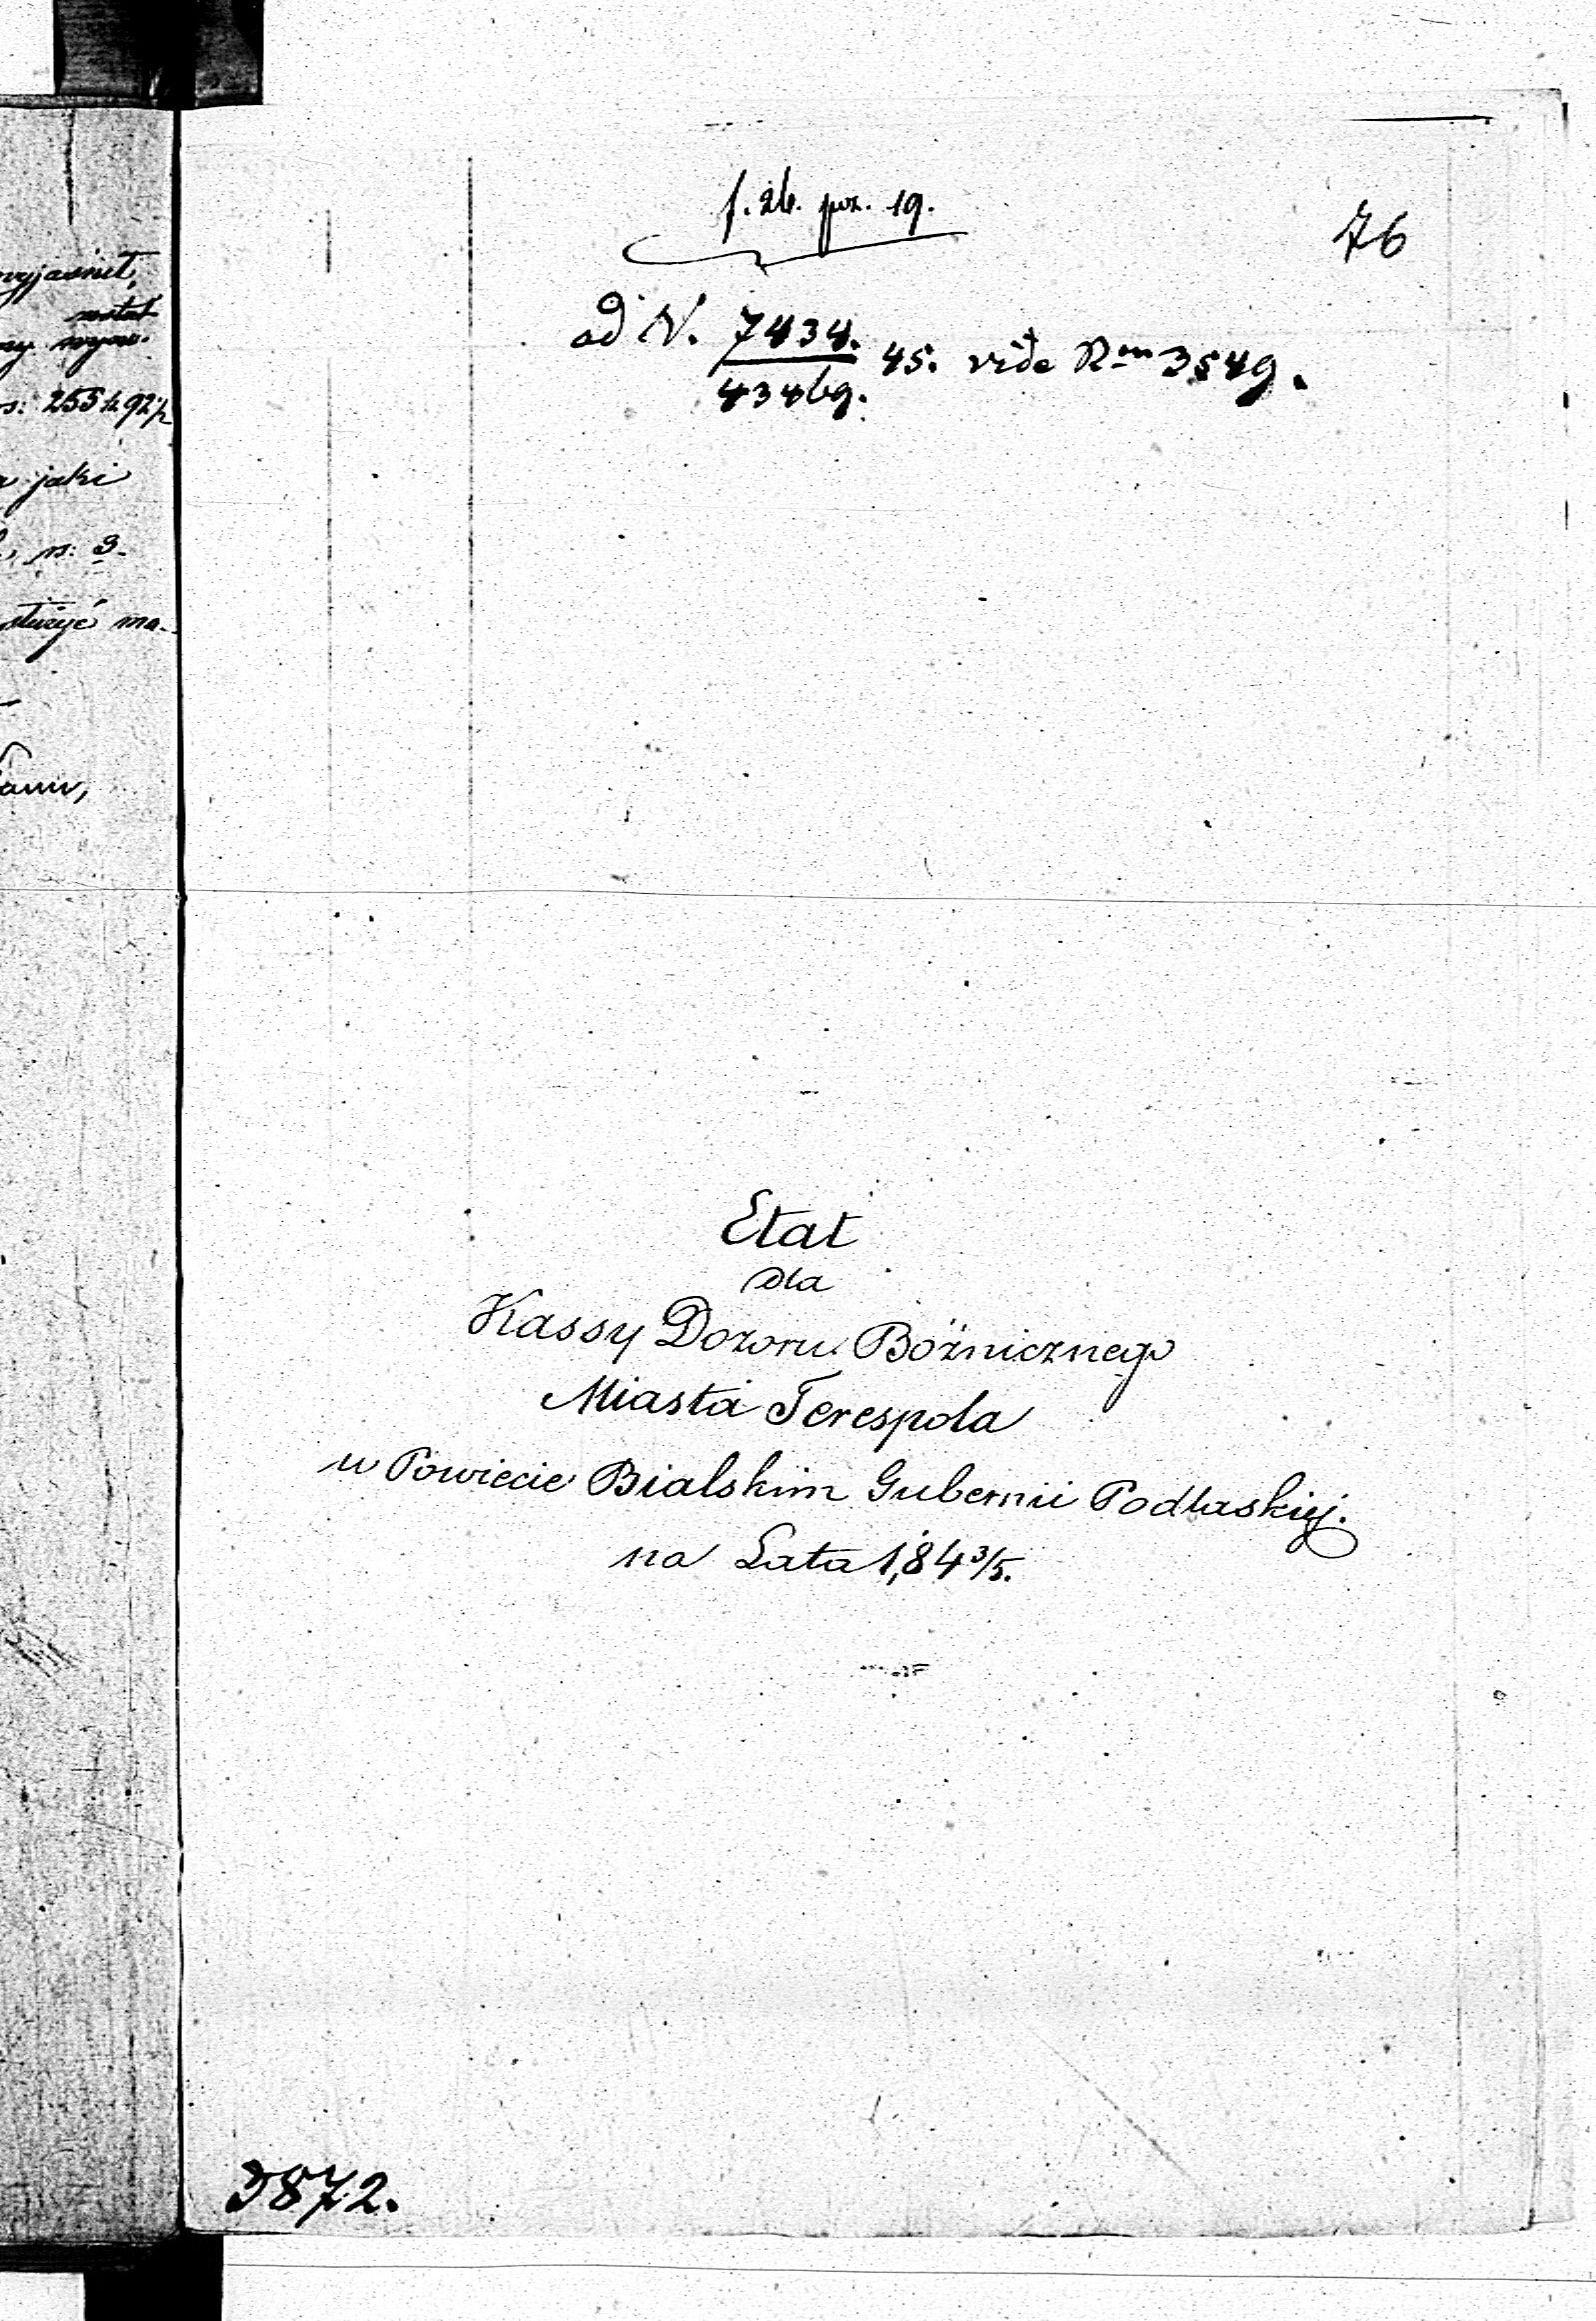 wyjaśnił,
255 k 92 1/2
jaki
n: 3.
służyć ma-
f. 26. poz. 19.
76
ad N. 7434. / 43469. 45. vide Rm 3549.
Etat
dla
Kassy Dozoru Bóźnicznego
Miasta Terespola
w Powiecie Bialskim Gubernii Podlaskiej.
na Lata 1,84 3/5.
3872.